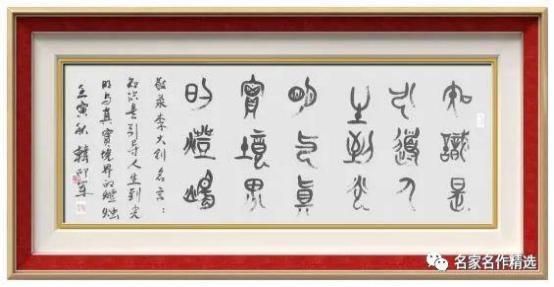 知識是
引導人
生到光
明与真
實境界
的燈燭
敬录李大钊名言：
知识是引导人生到光
明与真實境界的燈烛
壬寅秋 韩
名家名作精选